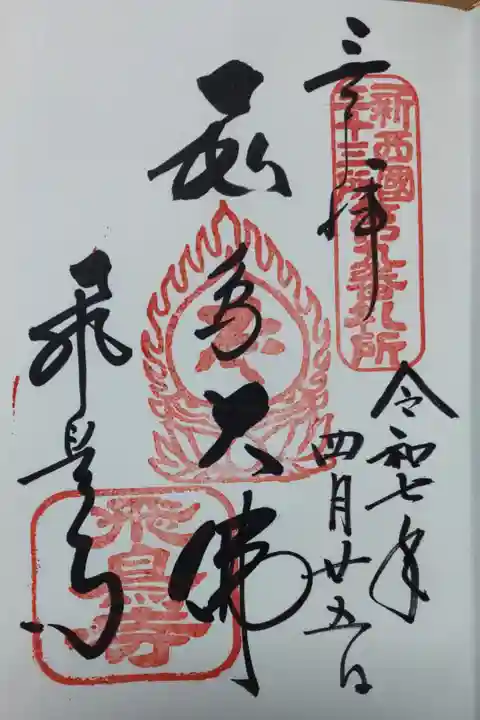 奉拝
新西國
三十三所第九番札所
令和七年
四月廿五日
飛鳥大佛
飛鳥寺
飛鳥寺